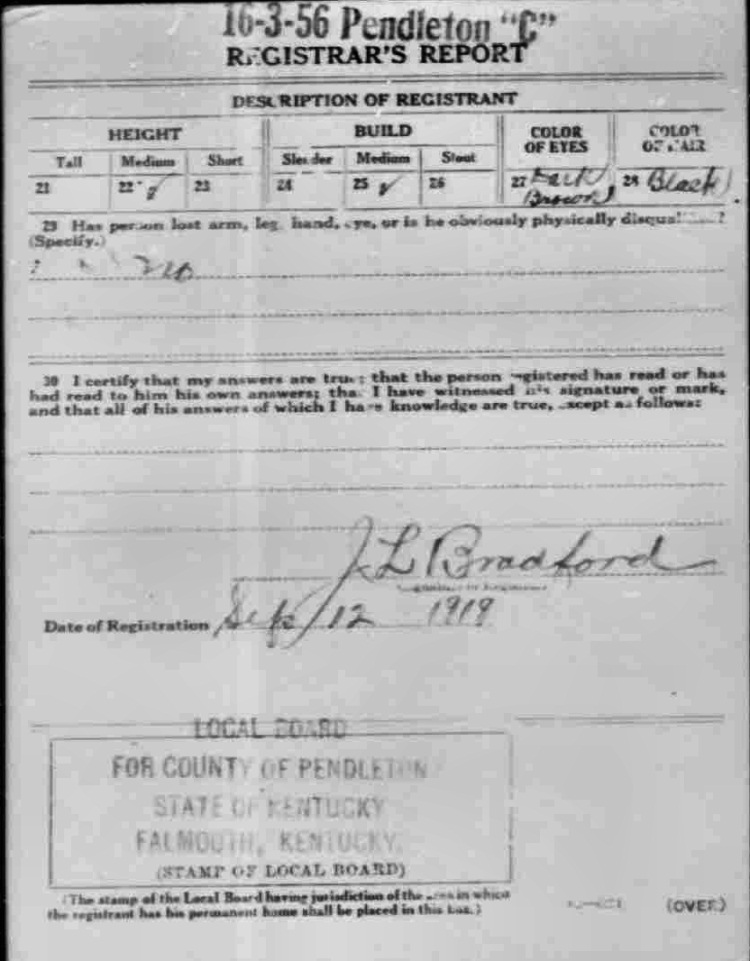 16-3-56 Pendleton "C"
REGISTRAR'S REPORT
DESCRIPTION OF REGISTRANT
HEIGHT BUILD COLOR OF EYES COLOR OF HAIR
Tall Medium Short Slender Medium Stout
21 22 ✓ 23 24 25 ✓ 26 27 Dark Brown 28 Black
29 Has person lost arm, leg, hand, eye, or is he obviously physically disqual ?
(Specify.)
no
30 I certify that my answers are true; that the person registered has read or has
had read to him his own answers; that I have witnessed his signature or mark,
and that all of his answers of which I have knowledge are true, except as follows:
J L Bradford
Date of Registration Sept 12 1918
LOCAL BOARD
FOR COUNTY OF PENDLETON
STATE OF KENTUCKY
FALMOUTH, KENTUCKY.
(STAMP OF LOCAL BOARD)
(The stamp of the Local Board having jurisdiction of the area in which
the registrant has his permanent home shall be placed in this box.)
(OVER)